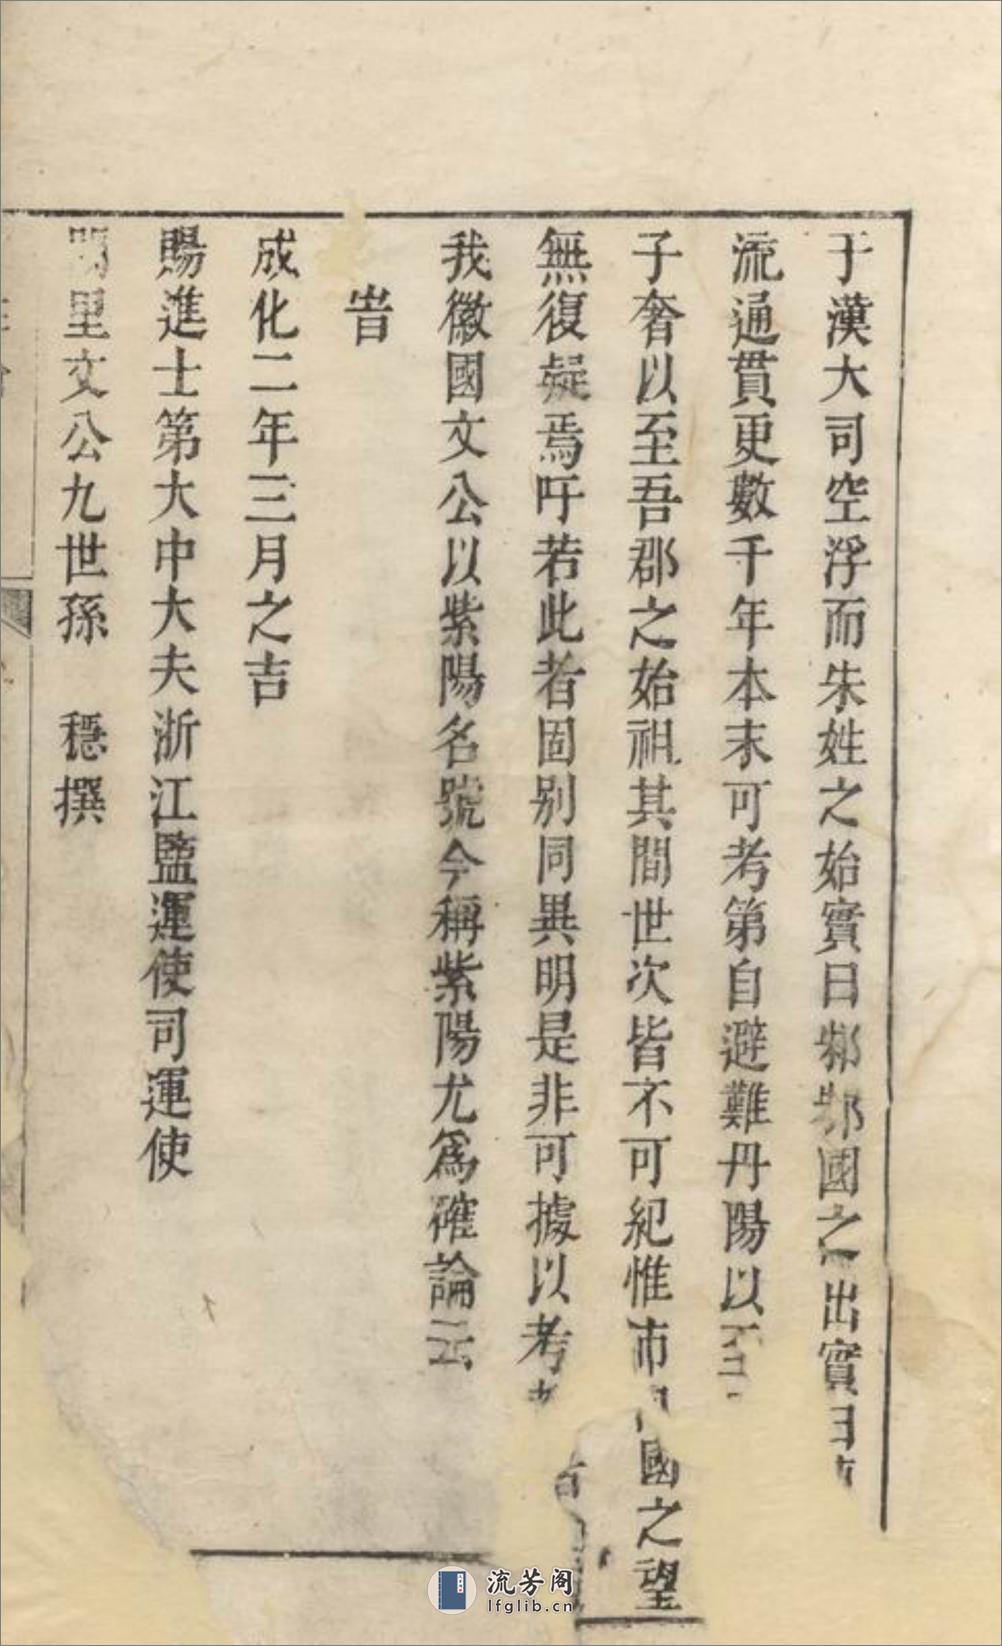 于漢大司空浮而朱姓之始實曰邾邾國之出實曰
流通貫更數千年本末可考第自避難丹陽以至
子奢以至吾郡之始祖其間世次皆不可紀惟沛國之望
無復疑焉吁若此者固別同異明是非可據以考
我徽國文公以紫陽名號今稱紫陽尤爲確論云
旹
成化二年三月之吉
賜進士第大中大夫浙江鹽運使司運使
闕里文公九世孫 穩撰
流芳阁
lfglib.cn